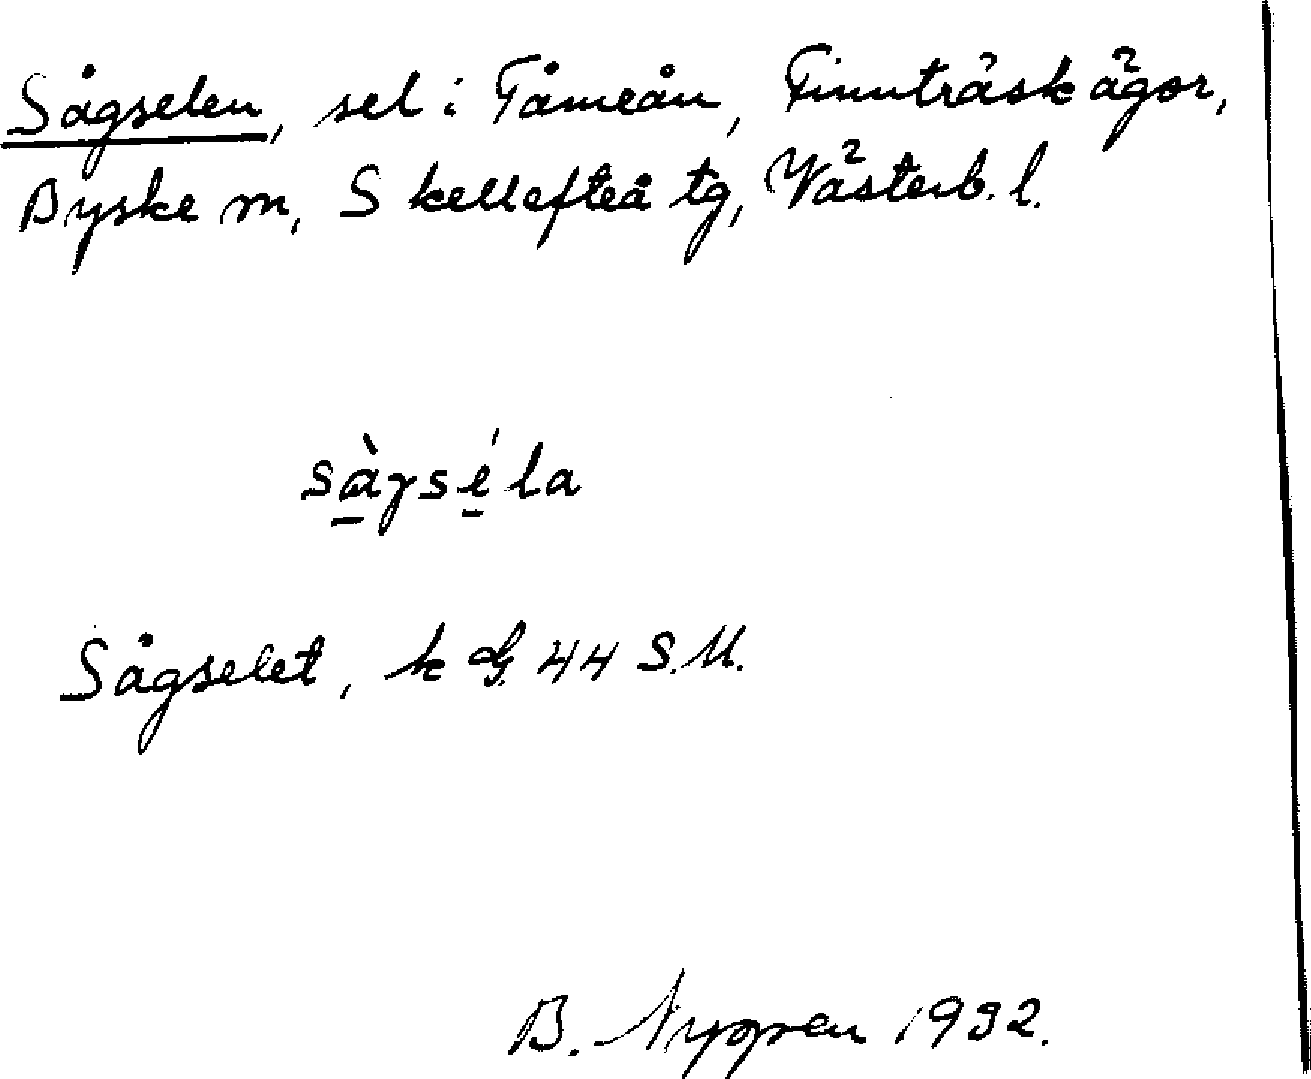 Sågselen, sel i Tåmeån, Finnträsk ägor,
Byske sn, Skellefteå tg, Västerb. l.
sàgséla
Sågselet, k G. 44 S.U.
B. Nygren 1932.